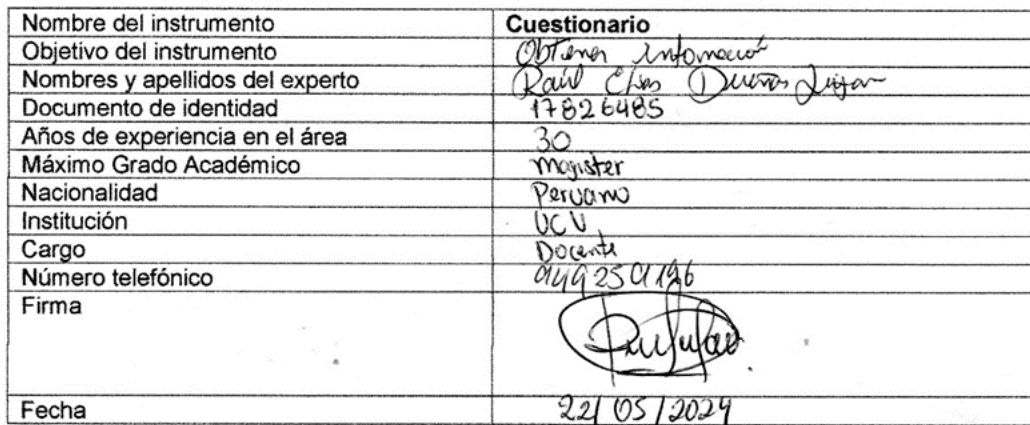 Nombre del instrumento Cuestionario
Objetivo del instrumento Obtener información
Nombres y apellidos del experto Raúl Dueñas
Documento de identidad 17826485
Años de experiencia en el área 30
Máximo Grado Académico Magister
Nacionalidad Peruano
Institución UCV
Cargo Docente
Número telefónico
Firma
Fecha 22/05/2024